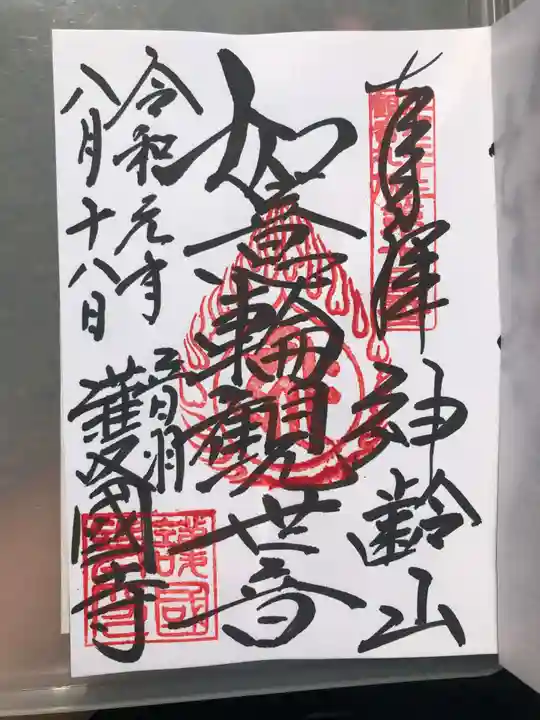 奉拝
神齢山
如意輪観世音
令和元年
八月十八日
音羽
護國寺
護國